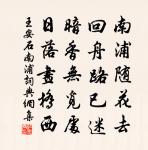 南浦随花去
回舟路已迷
暗香無覓處
日落畫橋西
王安石南浦詞典網集